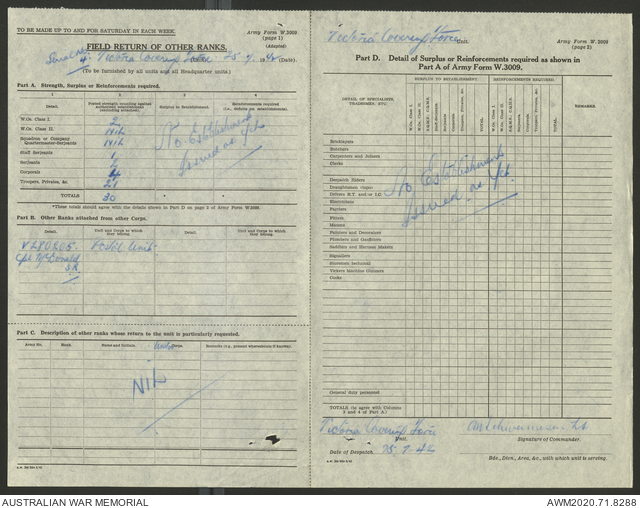 TO BE MADE UP TO AND FOR SATURDAY IN EACH WEEK.
Army Form W.3009
(page 1)
(Adapted)
FIELD RETURN OF OTHER RANKS.
Serial No. 4. Victoria Covering Force 25 . 7 . 1942 (Date)
(To be furnished by all units and all Headquarter units.)
Part A. Strength, Surplus or Reinforcements required.
1 2 3 4
Detail. Posted strength counting against authorized establishment (excluding attached). Surplus to Establishment. Reinforcements required
W.Os. Class I. 2
W.Os. Class II. NIL
Squadron or Company Quartermaster-Serjeants NIL
Staff Serjeants 1
Serjeants
Corporals 4
Troopers, Privates, &c. 21
TOTALS 30 * *
No Establishment
Issued as yet
*These totals should agree with the details shown in Part D on page 2 of Army Form W.3009.
Part B. Other Ranks attached from other Corps.
Detail. Unit and Corps to which they belong. Detail. Unit and Corps to which they belong.
Cpl McDonald
S.R.
Part C. Description of other ranks whose return to the unit is particularly requested.
Army No. Rank. Name and Initials. Corps. Remarks (e.g., present whereabouts if known).
NIL
Victoria Covering Force Unit.
Army Form W.3009
(page 2)
Part D. Detail of Surplus or Reinforcements required as shown in
Part A of Army Form W.3009.
DETAIL OF SPECIALISTS, TRADESMEN, ETC.
SURPLUS TO ESTABLISHMENT REINFORCEMENTS REQUIRED
W.Os. Class I. W.Os. Class II. S.Q.M.S., C.Q.M.S. Staff-Serjeants Serjeants Corporals Troopers, Privates, &c. TOTAL
W.Os. Class I. W.Os. Class II. S.Q.M.S., C.Q.M.S. Staff-Serjeants Serjeants Corporals Troopers, Privates, &c. TOTAL
REMARKS.
Bricklayers
Butchers
Carpenters and Joiners
Clerks
Despatch Riders
Draughtsmen (topo)
Drivers M.T. and i/c I.C.
Electricians
Farriers
Fitters
Masons
Painters and Decorators
Plumbers and Gasfitters
Saddlers and Harness Makers
Signallers
Storemen technical
Vickers Machine Gunners
Cooks
No Establishment
Issued as yet.
General duty personnel
TOTALS (to agree with Columns
3 and 4 of Part A)
Victoria Covering Force
Unit.
Signature of Commander.
Date of Despatch. 25-7-42
Bde., Divn., Area, &c., with which unit is serving.
AUSTRALIAN WAR MEMORIAL
AWM2020.71.8288